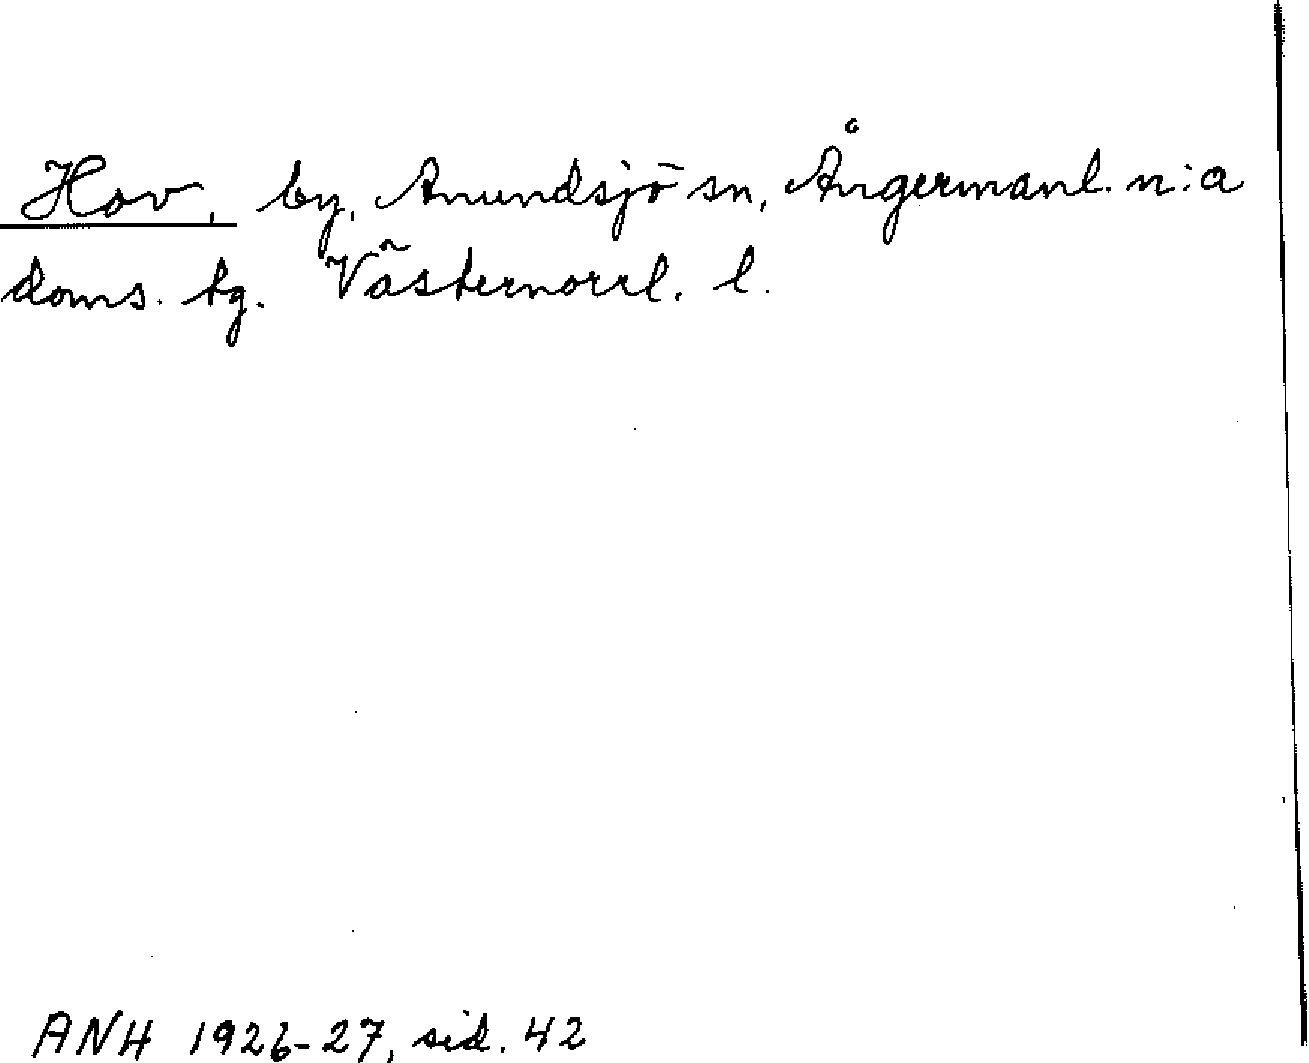 Hov, by, Anundsjö sn, Ångermanl. n:a
doms. tg. Västernorrl. l.
ANH 1926-27, sid. 42